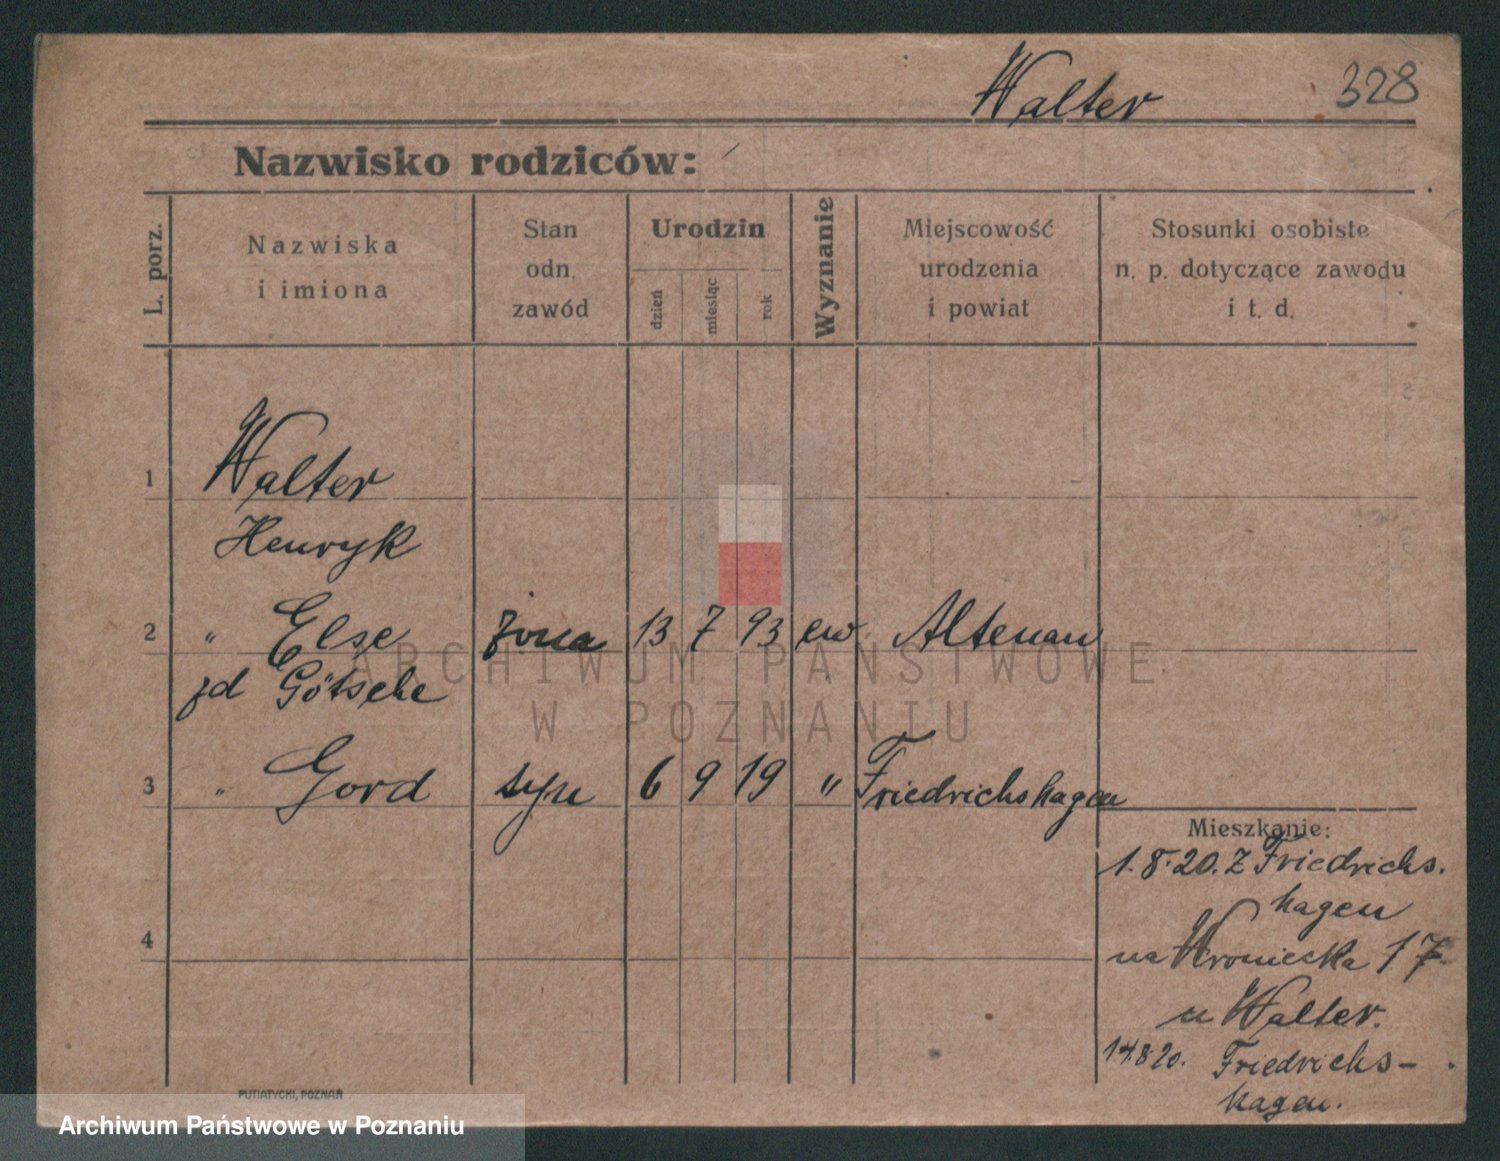 Walter 328
Nazwisko rodziców:
L. porz.
Nazwiska
i imiona
Stan
odn.
zawód
Urodzin
dzień
miesiąc
rok
Wyznanie
Miejscowość
urodzenia
i powiat
Stosunki osobiste
n. p. dotyczące zawodu
i t. d.
1 Walter
Henryk
2 " Else żona 13 7 93 ew Altenau
zd Götsche
3 " Gord syn 6 9 19 " Friedrichshagen
Mieszkanie:
1.8.20. z Friedrichs.
hagen
na Wroniecka 17
4
u Walter.
14.8.20. Friedrichs-
hagen.
PUTIATYCKI, POZNAŃ
ARCHIWUM PAŃSTWOWE
W POZNANIU
Archiwum Państwowe w Poznaniu